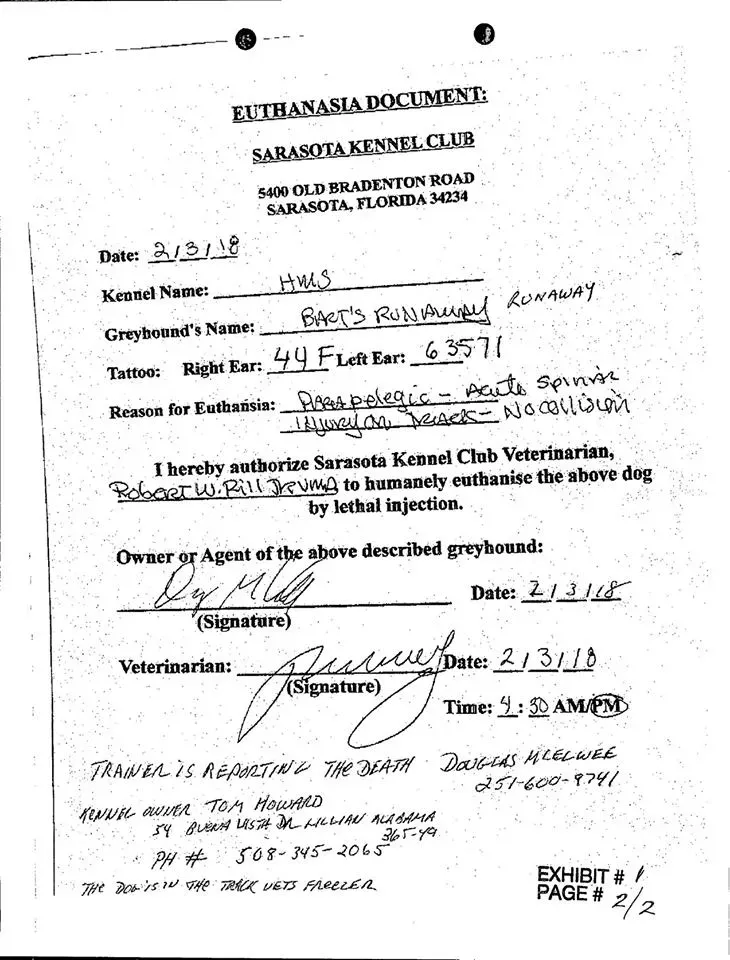 EUTHANASIA DOCUMENT:
SARASOTA KENNEL CLUB
5400 OLD BRADENTON ROAD
SARASOTA, FLORIDA 34234
Date: 2/3/18
Kennel Name: HMS
Greyhound's Name: BART'S RUNAWAY RUNAWAY
Tattoo: Right Ear: 44F Left Ear: 63571
Reason for Euthansia: PARAPelegic - Acute Spinal
INJury on TRACK - No collision
I hereby authorize Sarasota Kennel Club Veterinarian,
Robert W. Rill Jr VMD to humanely euthanise the above dog
by lethal injection.
Owner or Agent of the above described greyhound:
Date: 2/3/18
(Signature)
Veterinarian: Date: 2/3/18
(Signature)
Time: 4:30 AM/PM
TRAINER IS REPORTING THE DEATH DOUGLAS MCELWEE
251-600-9741
KENNEL OWNER TOM HOWARD
34 BUENA VISTA DR LILLIAN ALABAMA
365-49
PH # 508-345-2065
THE DOG IS IN THE TRACK VETS FREEZER
EXHIBIT # 1
PAGE # 2/2